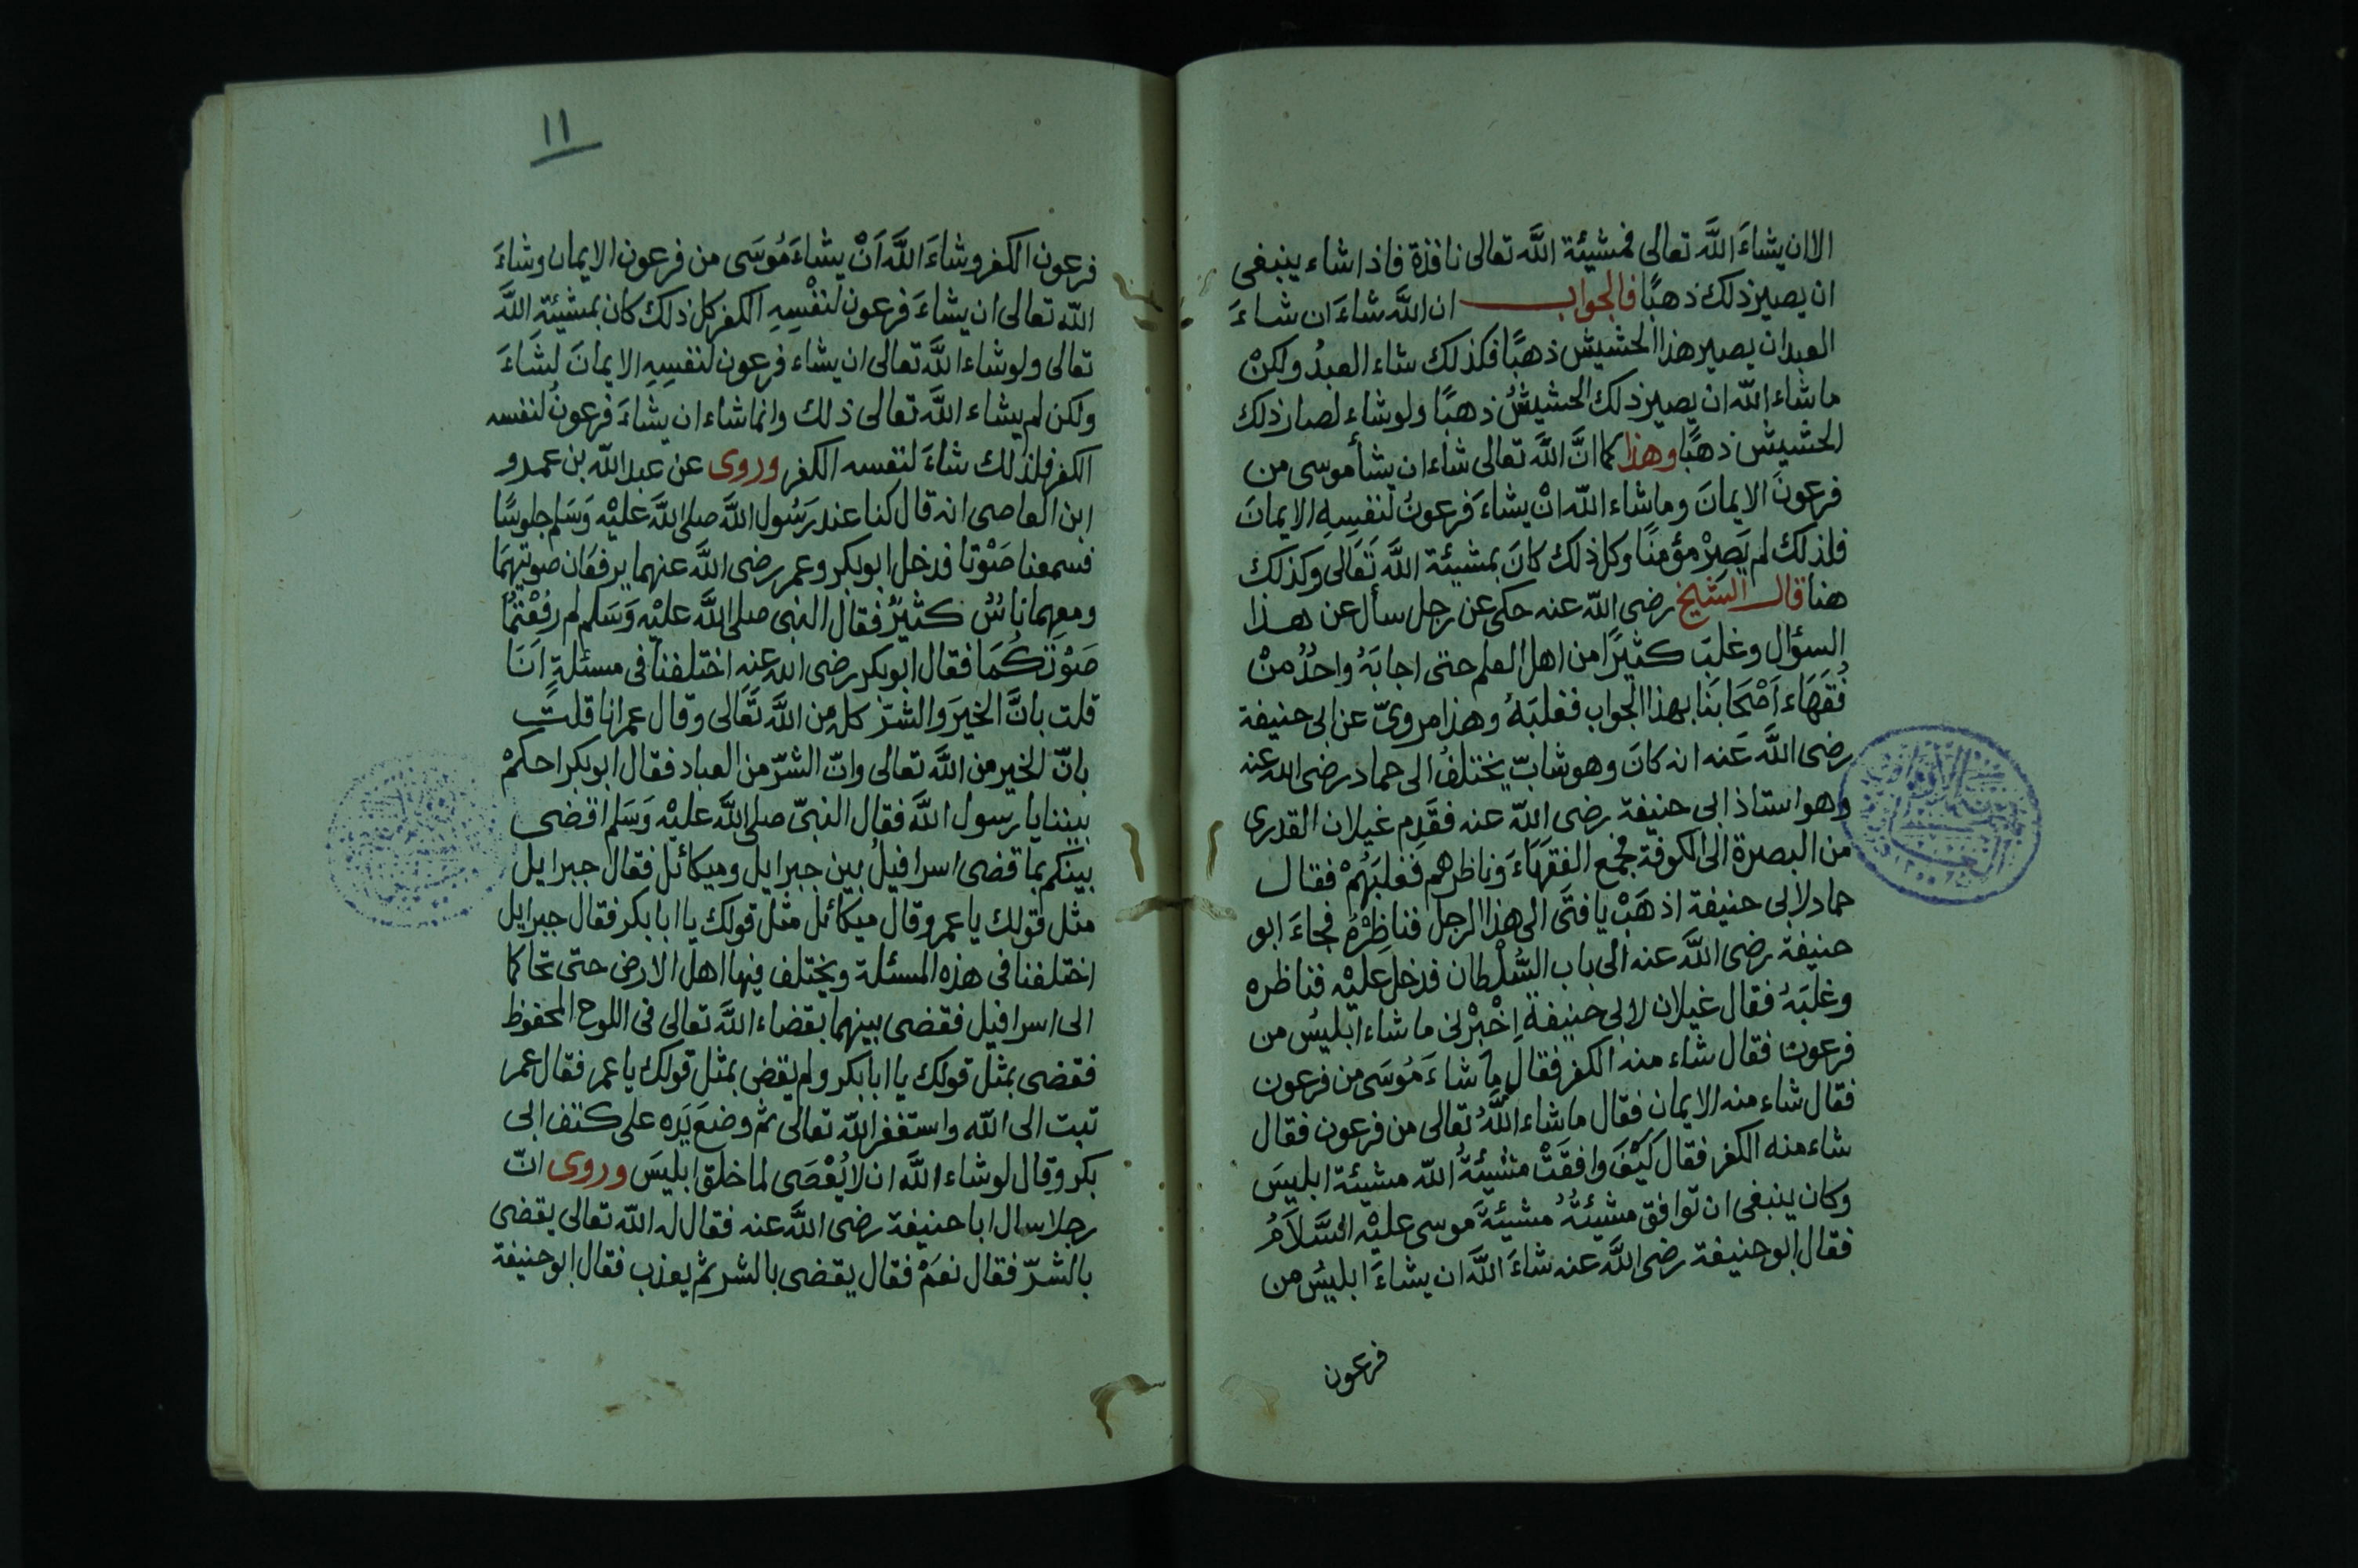 الا ان يشاءَ اللَّه تعالى فمشيئة اللَّه تعالى نافذة فاذا شاء ينبغى
ان يصير ذلك ذهبًا فالجواب ان اللَّه شاءَ ان شاءَ
العبد ان يصير هذا الحشيش ذهبًا فكذلك شاء العبدُ ولكنْ
ما شاء اللّه ان يصير ذلك الحشيشُ ذهبًا ولو شاء لصار ذلك
الحشيش ذهبًا وهذا كما انَّ اللَّه تعالى شاء ان يشأ موسى من
فرعونَ الايمانَ وما شاء اللّه انْ يشاءَ فرعونُ لنفسِهِ الايمانَ
فلذلك لم يَصِرْ مؤمنًا وكل ذلك كانَ بمشيئة اللَّه تَعَالى وكذلك
هنا قال الشيخ رضى اللّه عنه حكى عن رجل سأل عن هذا
السؤال وغلبَ كثيرًا من اهل العلم حتى اجابَهُ واحدٌ منْ
فُقَهَاء اَصْحَابنَا بهذا الجواب فغلبَهُ وهذا مروىّ عن ابى حنيفة
رضى اللَّه عَنه انه كانَ وهو شابّ يختلفُ الى حماد رضى اللّه عنه
وهو استاذ ابى حنيفة رضى اللّه عنه فقَدِم غيلان القدرى
من البصرة الى الكوفة فجمع الفقهَاءَ وَناظرهم فغلبَهُمْ فقال
حماد لابى حنيفة اذهَبْ يا فتَى الى هذا الرجل فناظِرْهُ فجاءَ ابو
حنيفة رضى اللَّه عنه الى باب السُّلْطان فدخل عليْه فناظره
وغلبَهُ فقال غيلان لابى حنيفة اِخْبِرْنى ما شاء ابليسُ من
فرعون فقال شاء منه الكفر فقال ما شاءَ مُوسَى من فرعون
فقال شاء منه الايمان فقال ما شاء اللَّهُ تعالى من فرعون فقال
شاء منه الكفر فقال كَيْفَ وافقَتْ مشيئةُ اللّه مشيئة ابليسَ
وكان ينبغى ان توافق مشيئتُهُ مشيئةَ موسى عليْه السَّلاَمُ
فقال ابو حنيفة رضى اللَّه عنه شاءَ اللَّه ان يشاءَ ابليسُ من
فرعون
١١
فرعون الكفر وشاءَ اللَّه اَنْ يشاءَ مُوسَى من فرعون الايمان وشاءَ
اللّه تعالى ان يشاءَ فرعون لنفْسِهِ الكفر كل ذلك كان بمشيئةِ اللَّه
تعالى ولو شاء اللَّه تعالى ان يشاء فرعون لنفسِهِ الايمانَ لشَاءَ
ولكن لم يشاء اللَّه تعالى ذلك وانما شاء ان يشاءَ فرعونُ لنفسه
الكفر فلذلك شاءَ لنفسه الكفر وروى عن عبد اللّه بن عمرو
ابن العاصى انه قال كنا عند رَسُول اللَّه صلى اللَّه عَليْه وَسَلم جلوسًا
فسمعنا صَوْتا فدخل ابو بكر وعمر رضى اللَّه عنهما يرفعَان صوتيهمَا
ومعهما ناسٌ كثيرٌ فقال النبى صلى اللَّه عليْه وَسَلم لم رفَعْتُمَا
صَوْتَكُمَا فقال ابو بكر رضى اللّه عنه اختلفنا فى مسئلةٍ اَنَا
قلت بانَّ الخيرَ والشرّ كل من اللَّه تَعَالى وقال عمر انا قلت
بانّ الخير من اللَّه تعالى وانّ الشرّ من العباد فقال ابو بكر احكمْ
بيننا يا رسول اللَّه فقال النبىّ صلى اللَّه عليْه وَسَلم اقضى
بينكم بما قضى اسرافيلُ بين جبرايل وميكائل فقال جبرايل
مثل قولك يا عمر وقال ميكائل مثل قولك يا ابا بكر فقال جبرايل
اختلفنا فى هذه المسئلة ويختلف فيها اهل الارض حتى تحاكما
الى اسرافيل فقضى بينهما بقضاء اللَّه تعالى فى اللوح المحفوظ
فقضى بمثل قولك يا ابا بكر ولم يقض بمثل قولك يا عمر فقال عمر
تبت الى اللّه واستغفر اللّه تعالى ثم وضعَ يَده على كتف ابى
بكر وقال لو شاء اللَّه ان لا يُعْصَى لما خلق ابليسَ وروى انّ
رجلا سال ابا حنيفة رضى اللَّه عنه فقال له اللّه تعالى يقضى
بالشرّ فقال نعمْ فقال يقضى بالشر ثم يعذب فقال ابو حنيفة